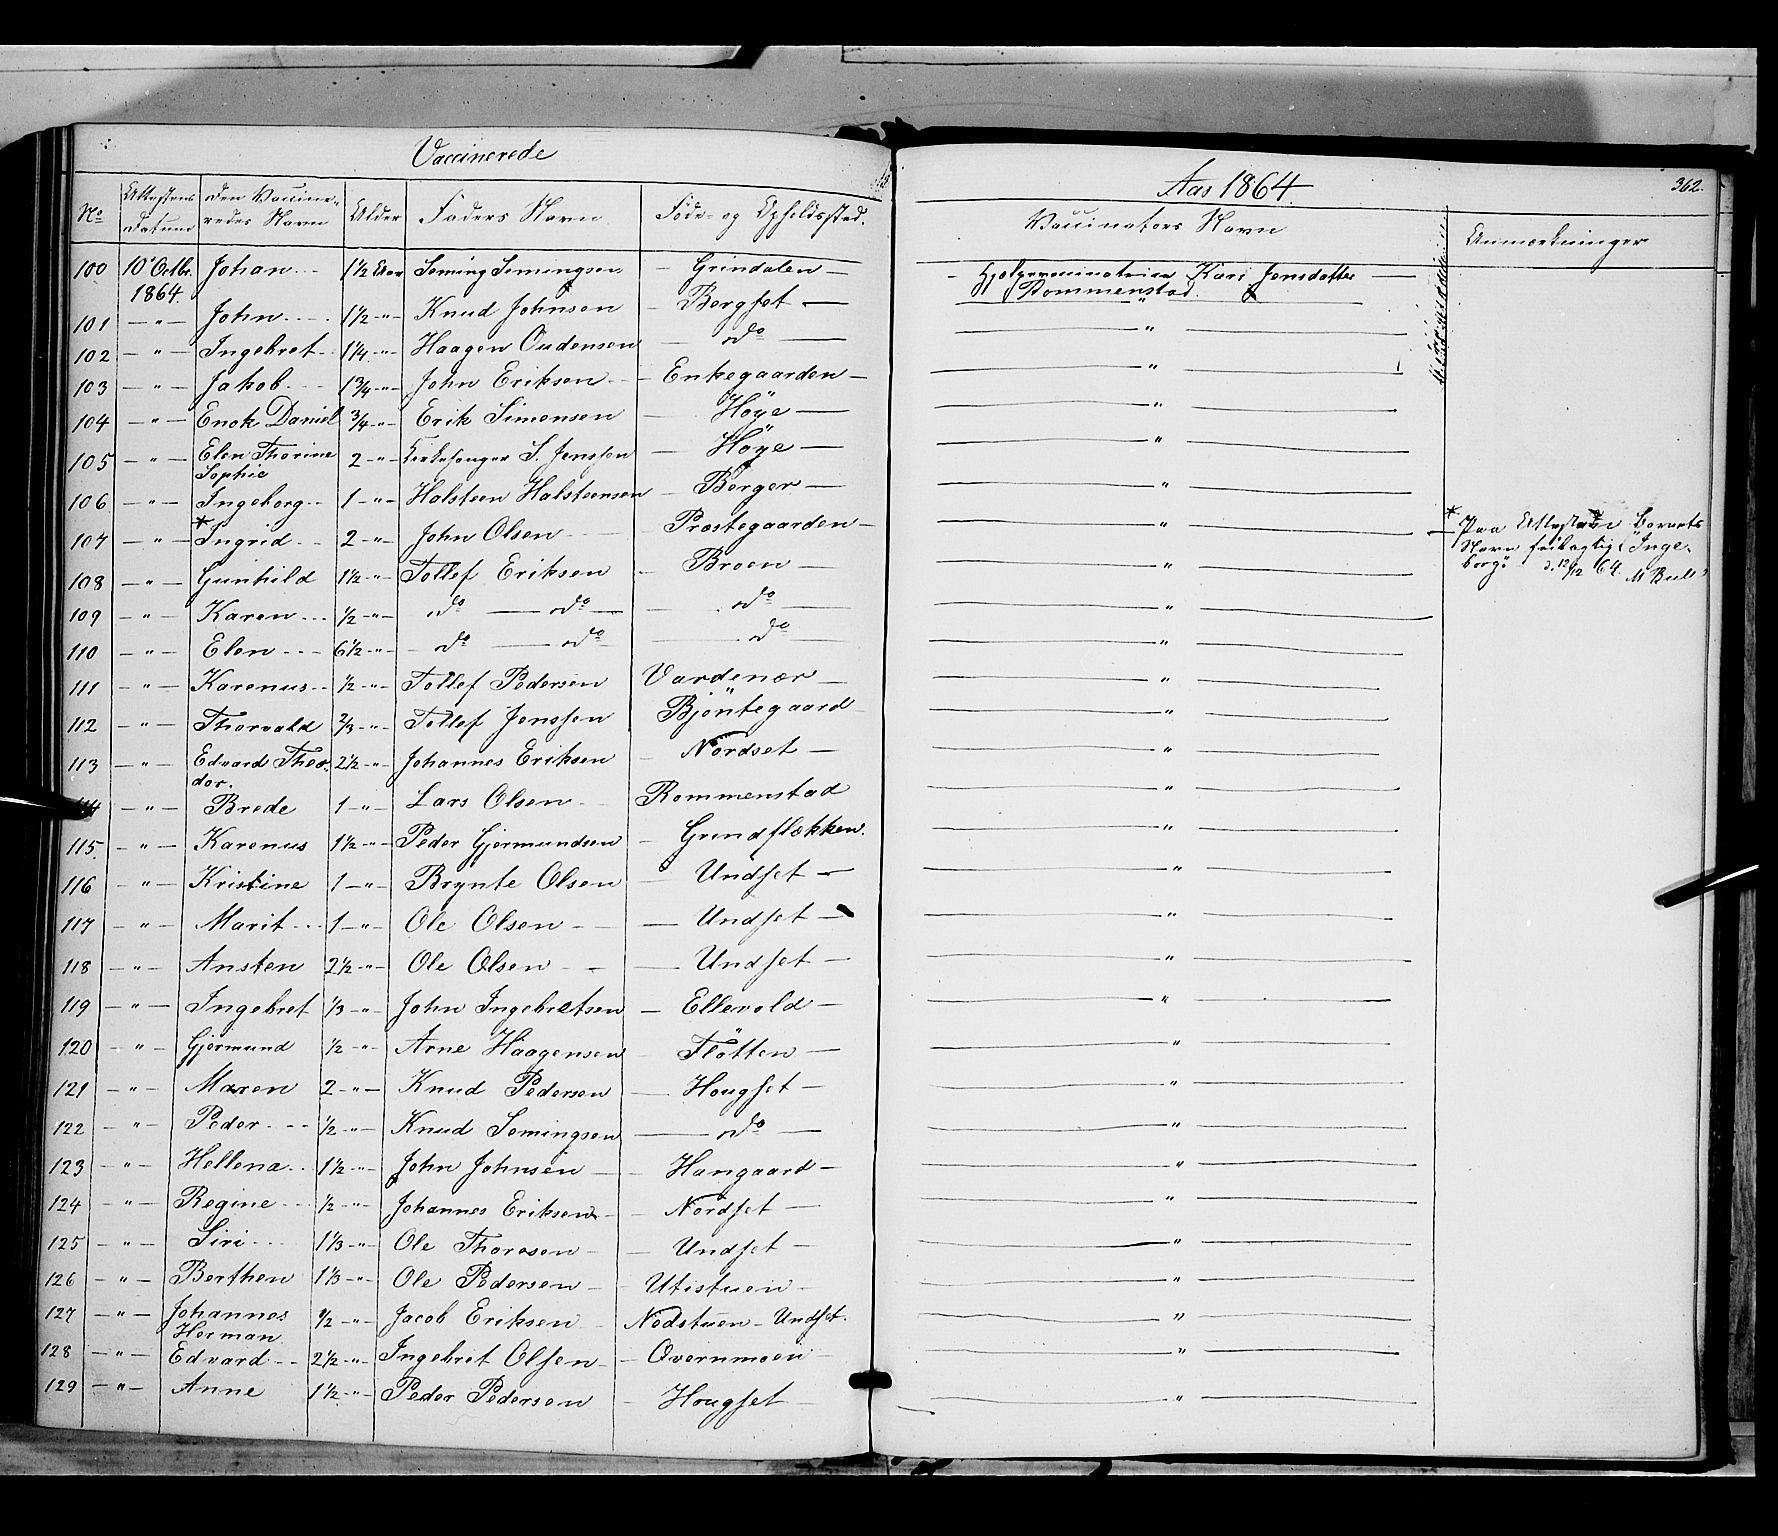 Vaccinerede
No Attestens Datum Den Vaccineredes Navn Alder Faders Navn Føde- og Opholdssted.
100 10' Octbr. 1864. Johan 1½ Aar Seming Semingsen Grindalen
101 — " — John 1½ — " — Knud Johnsen Bergset
102 — " — Ingebret 1¼ — " — Haagen Oudensen do
103 — " — Jakob 1¾ — " — John Eriksen Enkegaarden
104 — " — Enok Daniel ¾ — " — Erik Simensen Höye
105 — " — Elen Thorine Sophie 2 — " — Kirkesanger S. Jenssen Höye
106 — " — Ingeborg 1 — " — Halsteen Halsteensen Berger
107 — " — *Ingrid 2 — " — John Olsen Prestegaarden
108 — " — Gunhild 1½ — " — Tollef Eriksen Broen
109 — " — Karen ½ — " — do — do do
110 — " — Elen 6½ — " — do — do do
111 — " — Karenus ½ — " — Tollef Pedersen Vardenær
112 — " — Thorvald ⅔ — " — Tollef Jenssen Bjöntegaard
113 — " — Edvard Theodor. 2½ — " — Johannes Eriksen Nordset
114 — " — Brede 1 — " — Lars Olsen Rommenstad
115. — " — Karenus 1½ — " — Peder Gjermundsen Grindflækken.
116 — " — Kristine 1 — " — Brynte Olsen Undset
117 — " — Marit 1 — " — Ole Olsen Undset
118 — " — Ansten 2½ — " — Ole Olsen Undset
119 — " — Ingebret ⅓ — " — John Ingebretsen Ellevold
120 — " — Gjermund ½ — " — Arne Haagensen Flötten
121 — " — Maren 2 — " — Knud Pedersen Hougset
122 — " — Peder ½ — " — Knud Semingsen do
123 — " — Hellena 1½ — " — John Johnsen Hangaard
124 — " — Regine ½ — " — Johannes Eriksen Nordset
125 — " — Siri 1⅓ — " — Ole Thoresen Undset
126 — " — Berthen 1⅓ — " — Ole Pedersen Utistuen
127 — " — Johannes Herman ½ — " — Jacob Eriksen Nodstuen - Undset.
128 — " — Edvard 2½ — " — Ingebret Olsen Overnmoen
129 — " — Anne 1½ — " — Peder Pedersen Hougset
Aar 1864. 362.
Vaccinators Navn Anmærkninger
Hjelpevaccinatrice Kari Jensdatter
Rommenstad.
* Paa Attesten Barnets
Navn feilagtig: "Inge-
borg" d. 12/12 64. M Bull